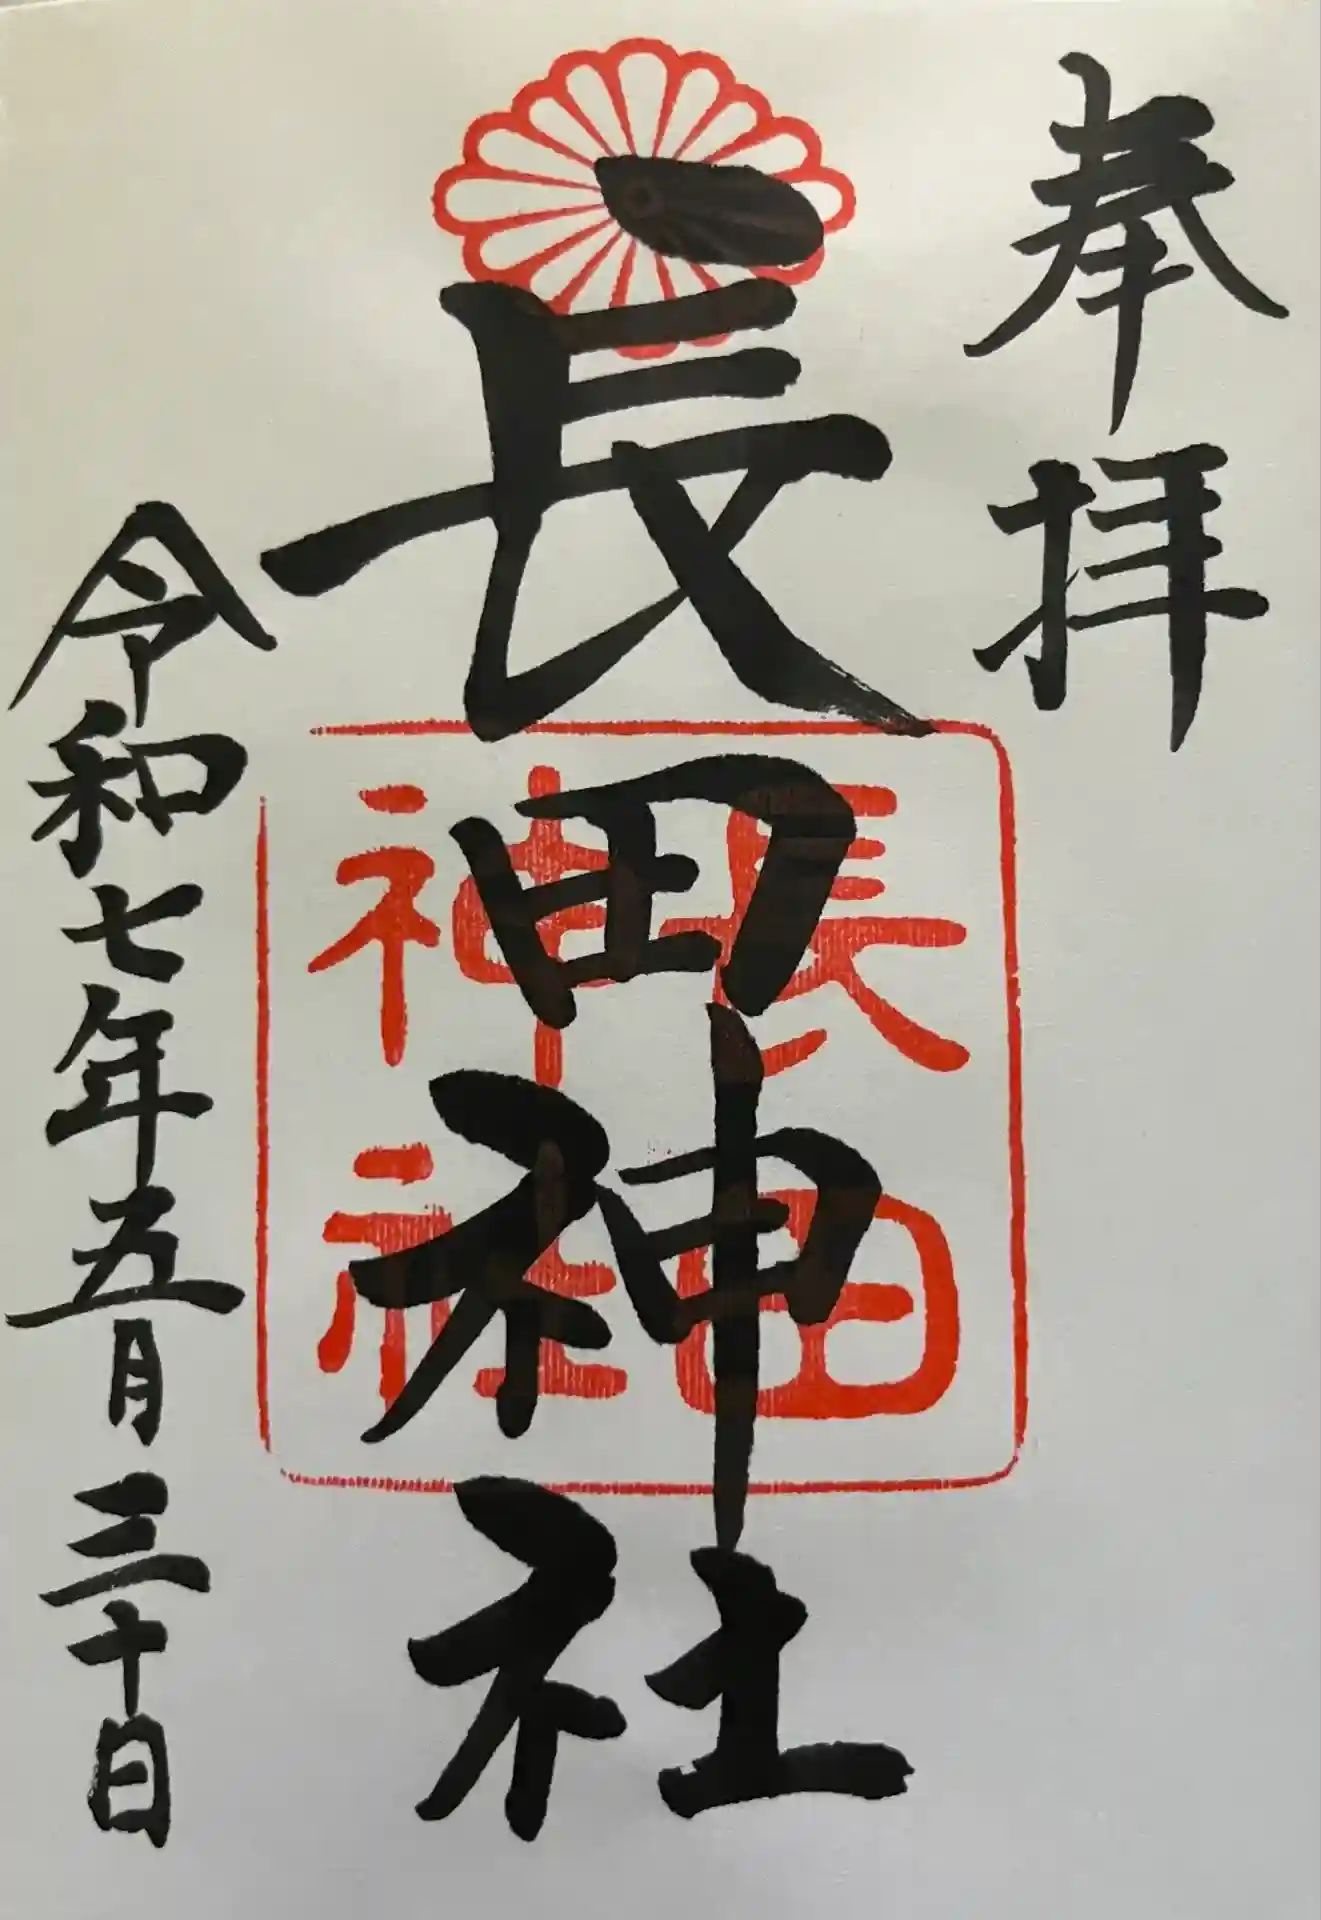 奉拝
長田神社
長田
神社
令和七年五月三十日